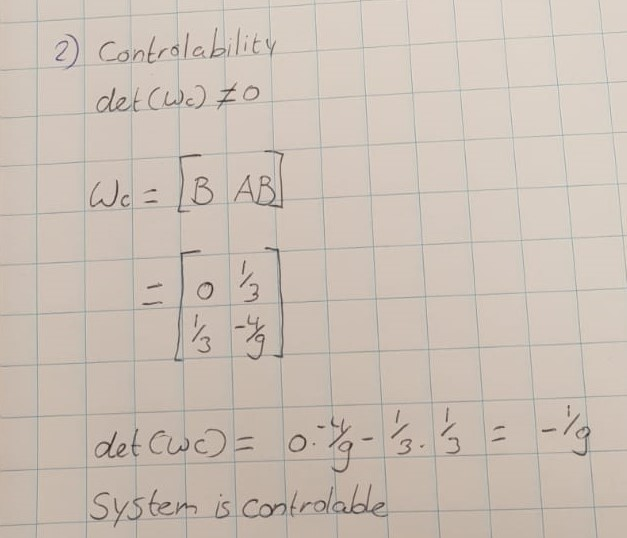 2) Controlability
det(Wc) ≠ 0
Wc = [B AB]
= [0 1/3
1/3 -4/9]
det(Wc) = 0·-4/9 - 1/3·1/3 = -1/9
System is controlable